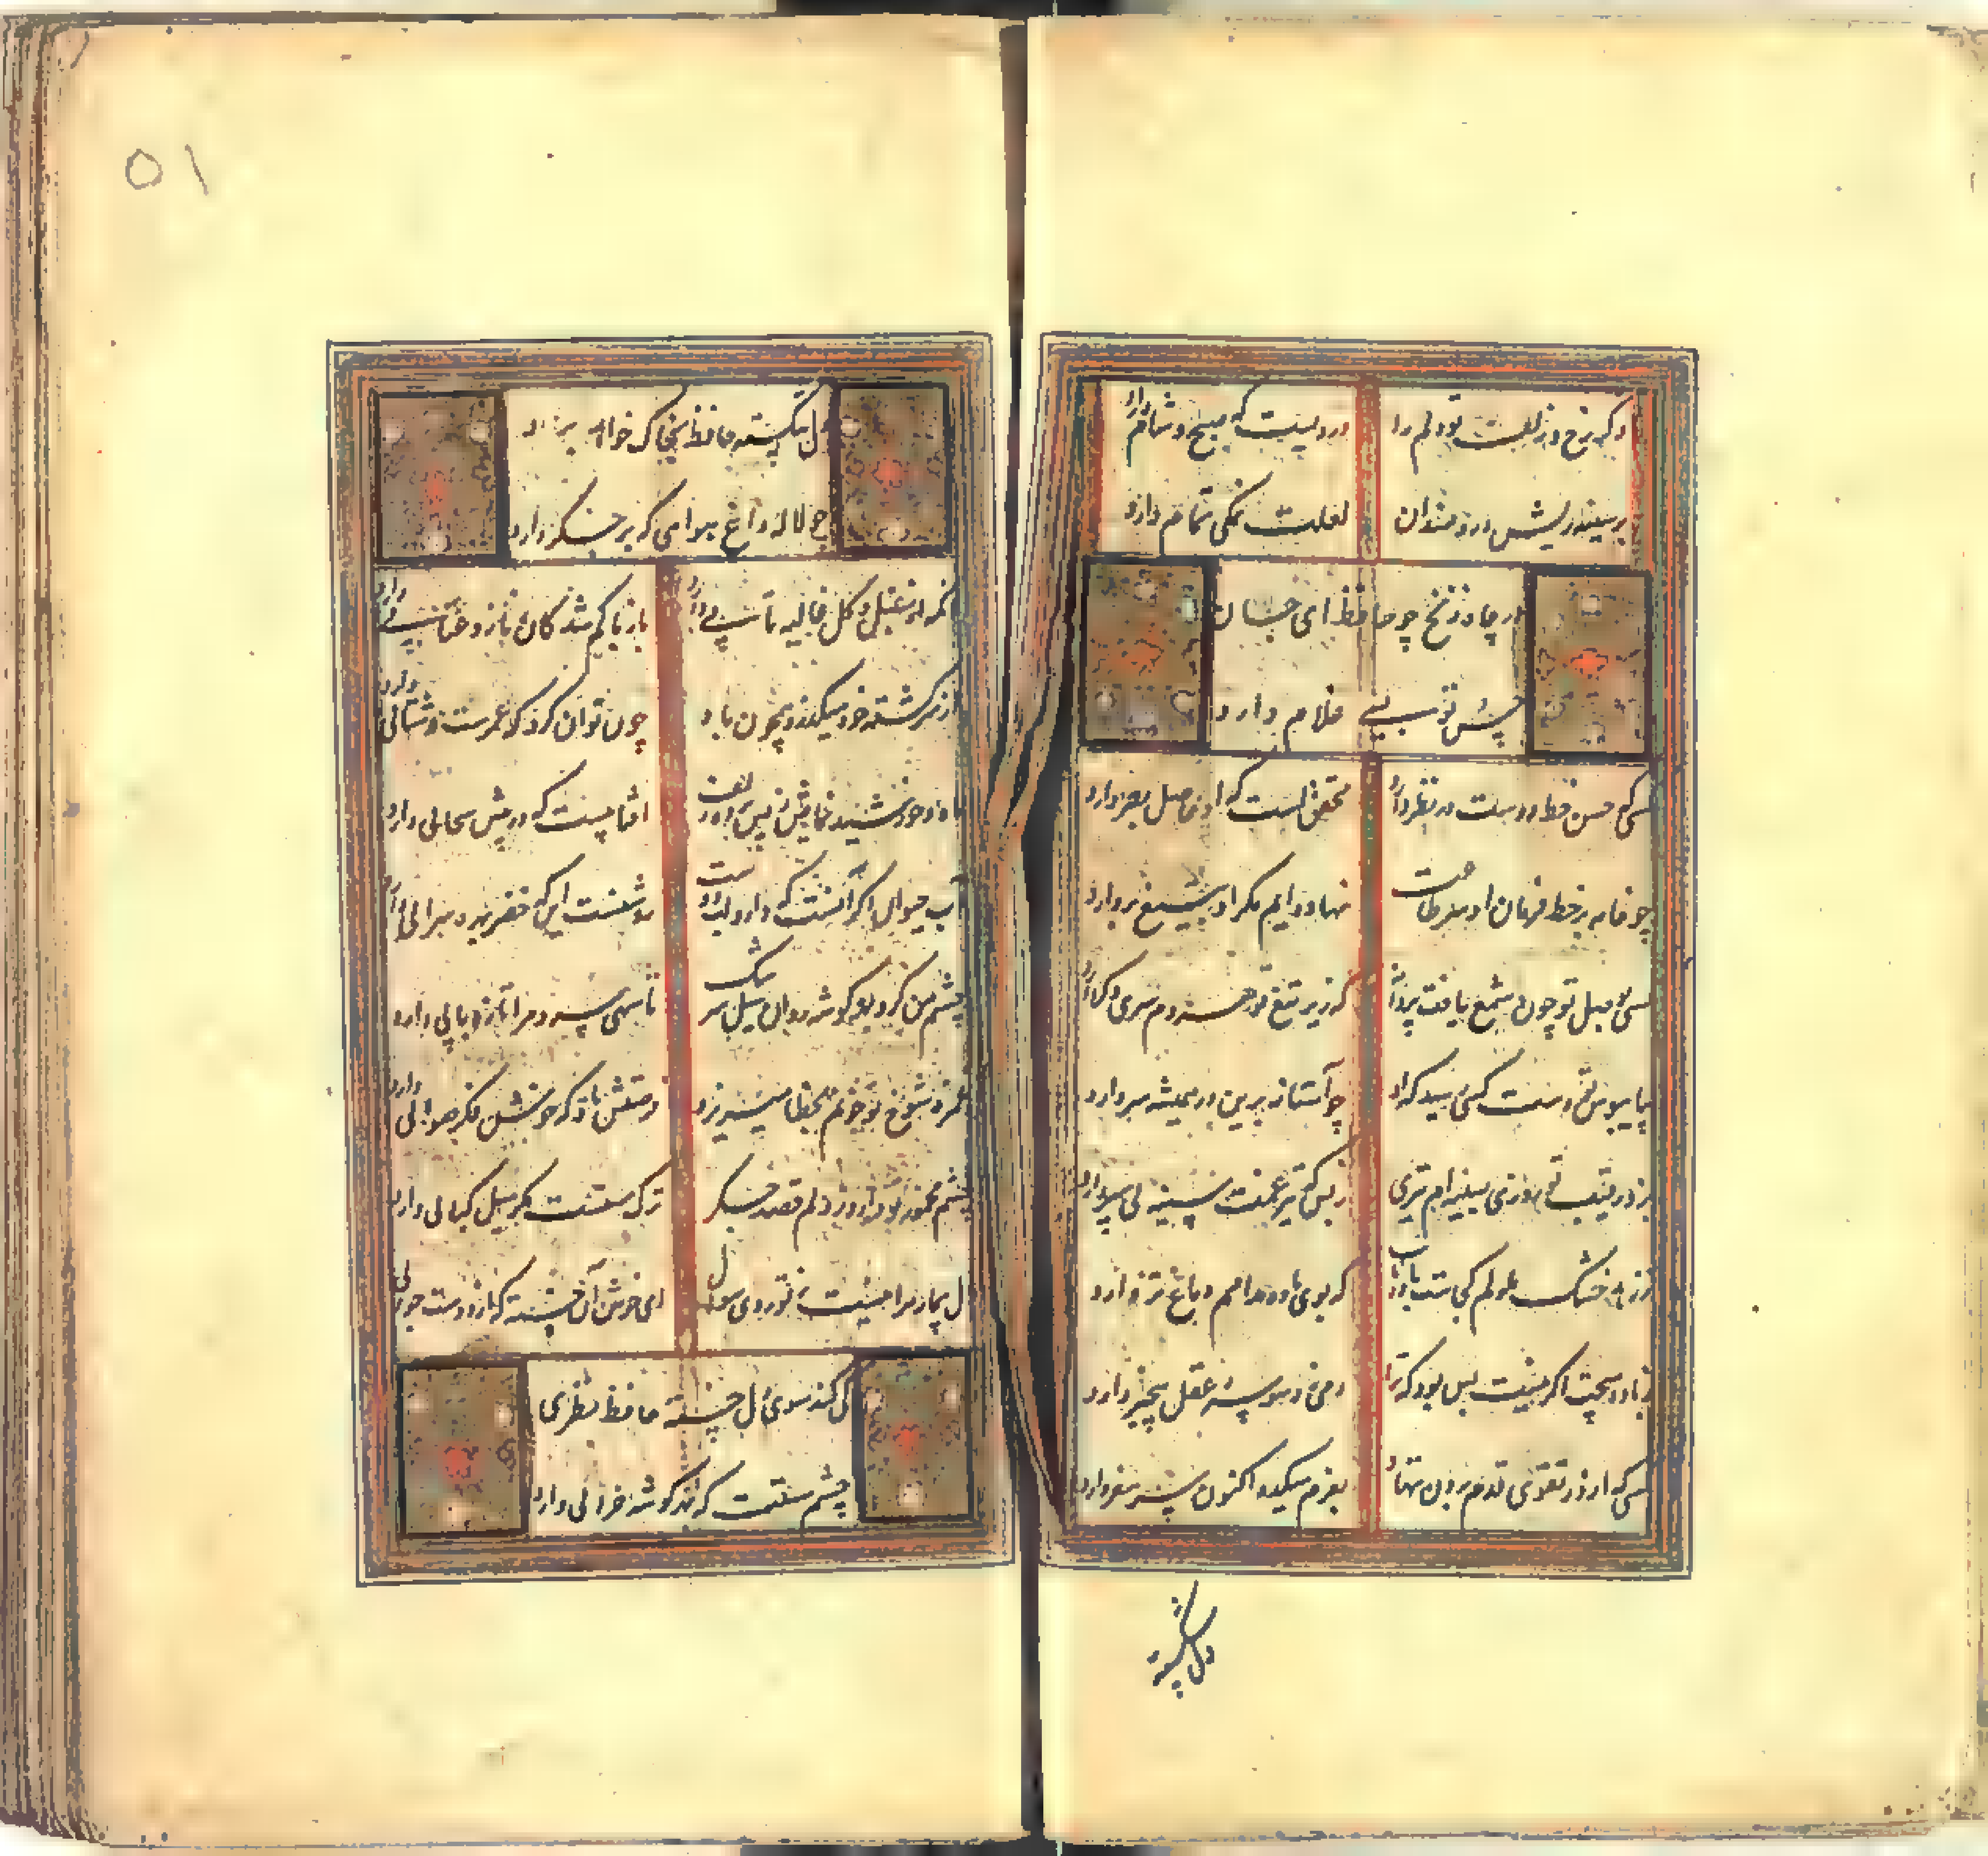 ذکر رخ و زلف تو دلم را دردیست که صبح و شام دارد
بر سینه ریش دردمندان لعلت نمکی تمام دارد
در چاه زنخ چو حافظ ای جان
حسن تو بسی غلام دارد
کسی که حسن خط دوست در نظر دارد محققست که او حاصل بصر دارد
چو خامه بر خط فرمان او سر طاعت نهاده‌ایم مگر او بتیغ بردارد
کسی بوصل تو چون شمع یافت پروانه که زیر تیغ تو هر دم سری دگر دارد
بپایبوس تو دست کسی رسید که او چو آستانه برین در همیشه سر دارد
رقیب تو روزی بسینه‌ام تیری ز بس که تیر غمت سینه بی سپر دارد
ز زهد خشک ملولم کجاست باده ناب که بوی باده مدامم دماغ تر دارد
ز باده هیچت اگر نیست بس بود که ترا دمی ز وسوسه عقل بیخبر دارد
کسی که از در تقوی قدم برون ننهاد بعزم میکده اکنون سر سفر دارد
دل شکسته
دل شکسته حافظ بخاک خواهد برد
چو لاله داغ هوایی که بر جگر دارد
آنکه از سنبل او غالیه تابی دارد باز با کم‌شدکان ناز و عتابی دارد
از سر کشته خود میکذرد همچون باد چون توان کرد که عمرست و شتابی دارد
ماه خورشید نمایش ز پس پرده زلف آفتابیست که در پیش سحابی دارد
آب حیوان اکر آنست که دارد لب دوست روشنست این که خضر بهره سرابی دارد
چشم من کرد بهر کوشه روان سیل سرشک تا سهی سرو ترا تازه بآبی دارد
غمزه شوخ تو خونم بخطا میریزد فرصتش باد که خوش فکر صوابی دارد
چشم مخمور تو دارد ز دلم قصد جکر ترک مستست مکر میل کبابی دارد
دل بیمار مرا نیست ز تو روی سوال ای خوش آن خسته که از دوست جوابی دارد
کی کند سوی دل خسته حافظ نظری
چشم مستت که بهر کوشه خرابی دارد
۵۱